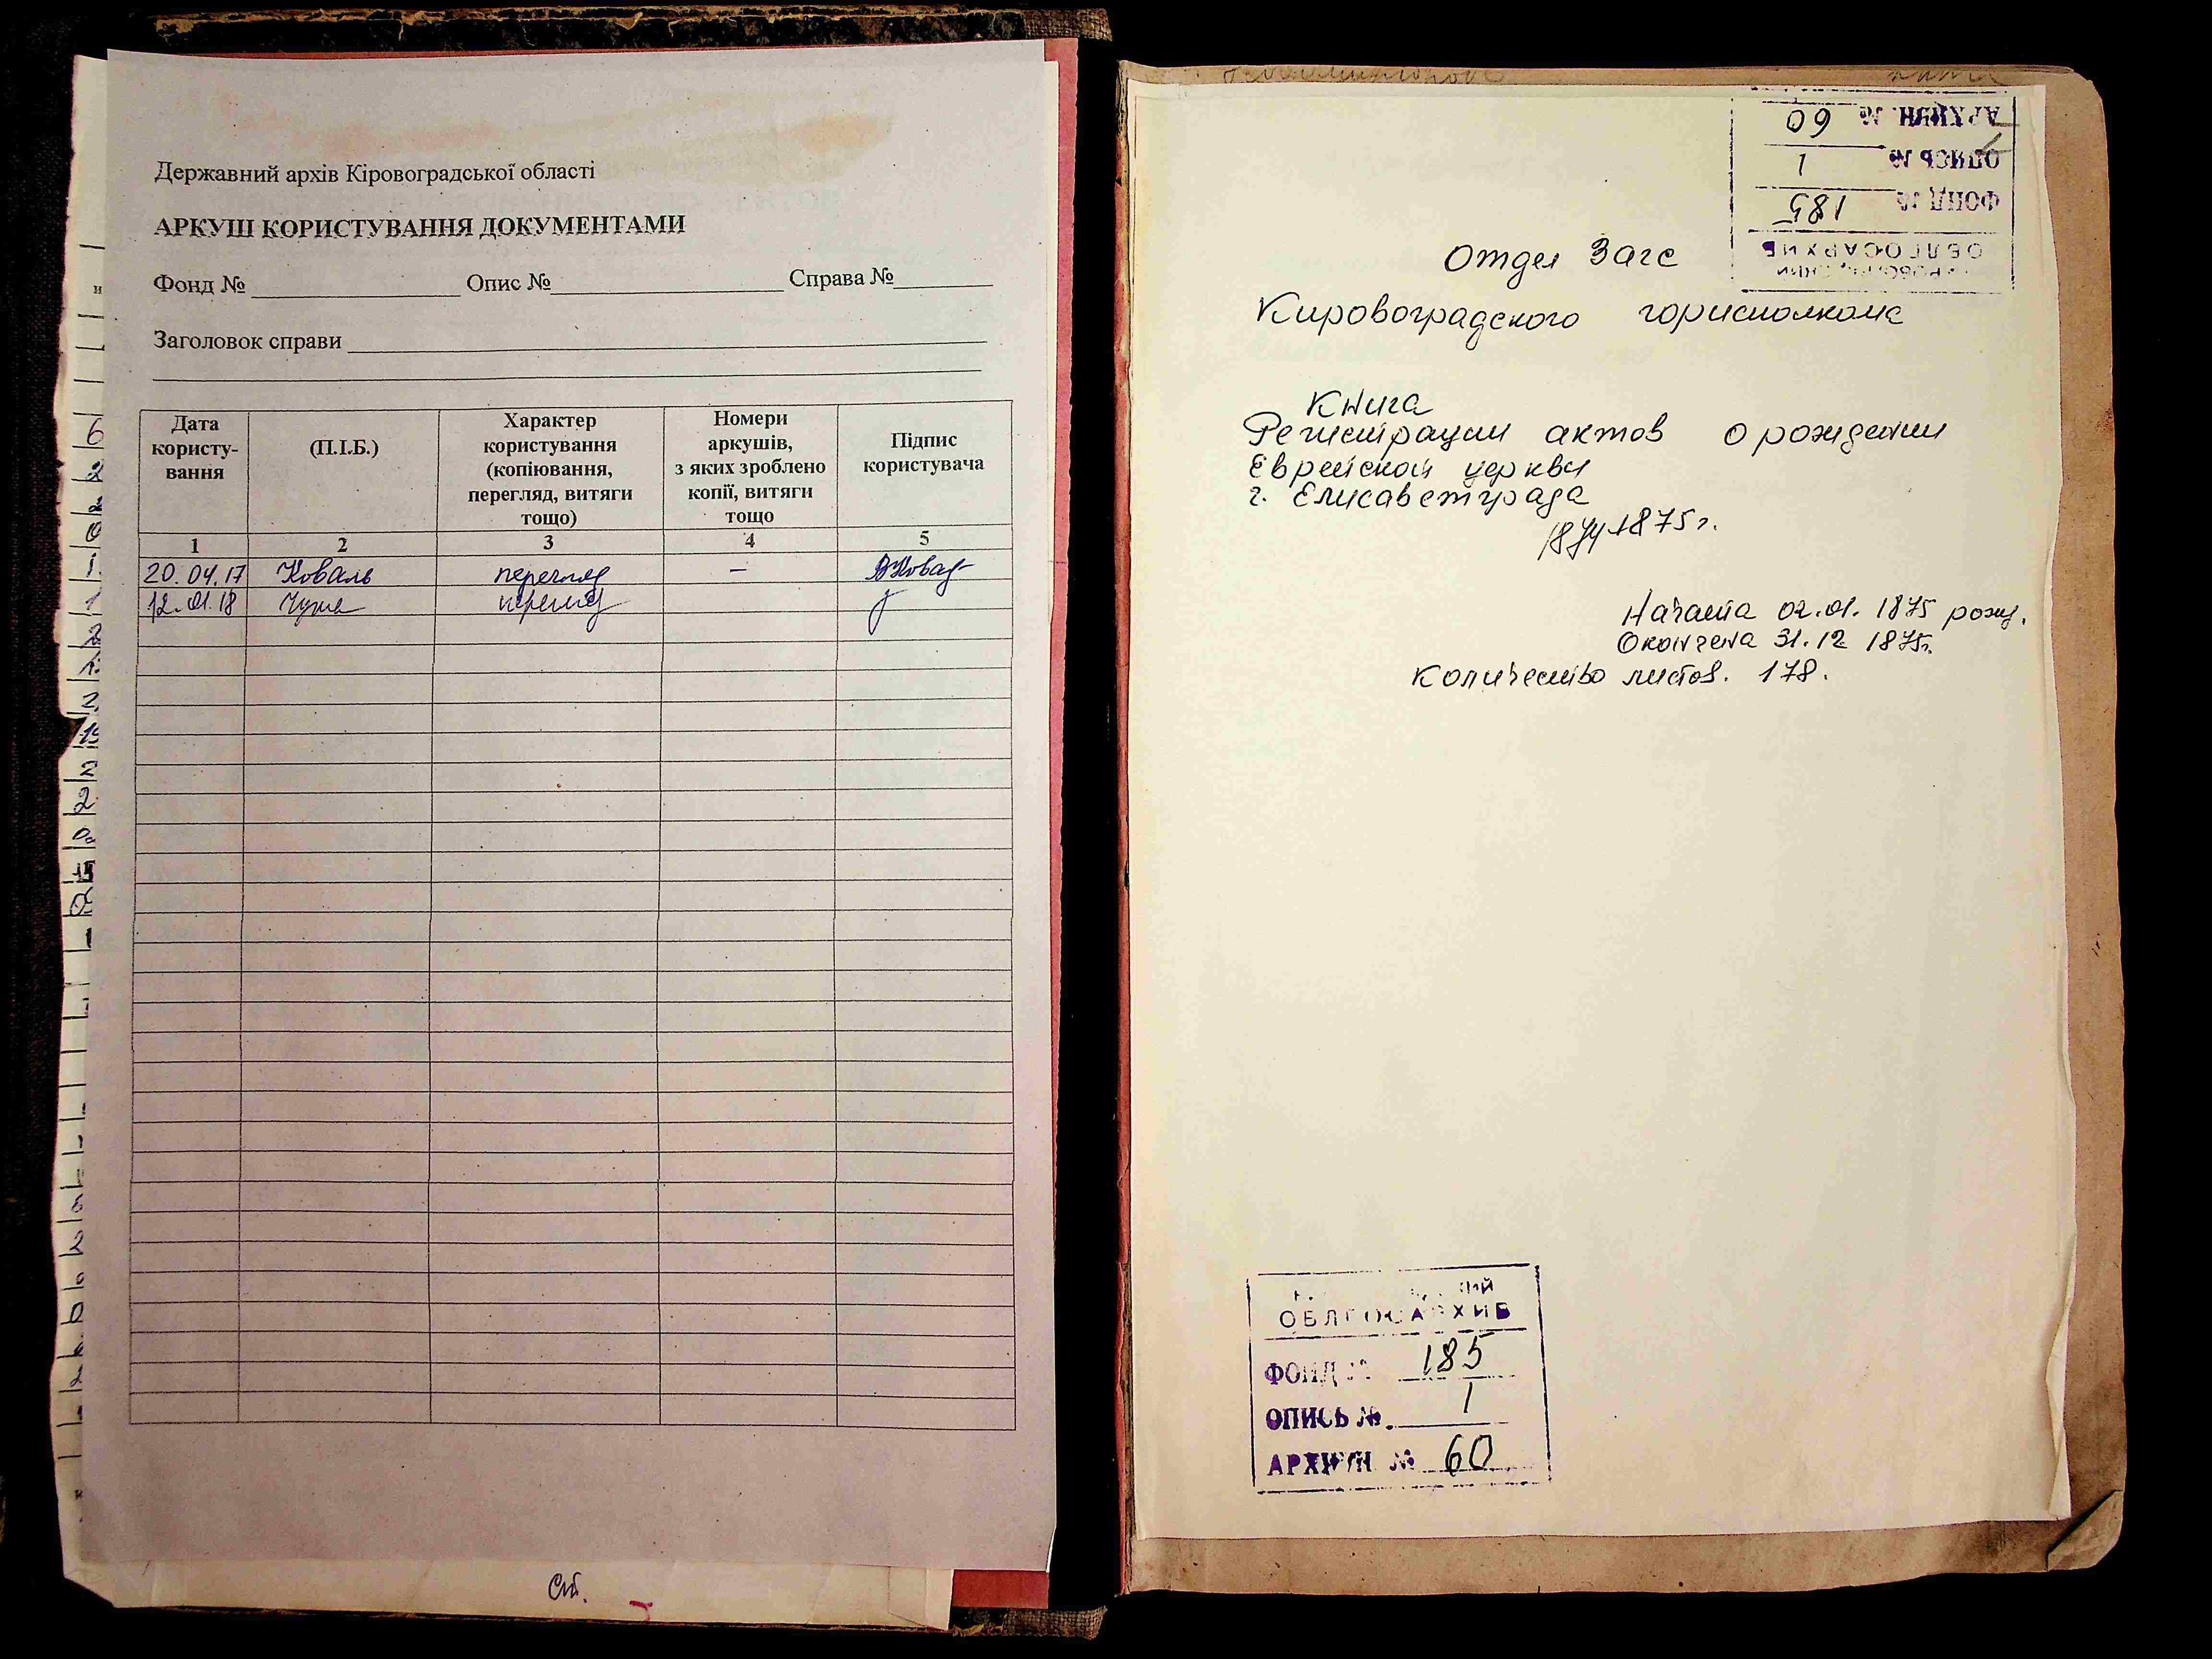 Державний архів Кіровоградської області
АРКУШ КОРИСТУВАННЯ ДОКУМЕНТАМИ
Фонд № Опис № Справа №
Заголовок справи
Дата користу-вання
(П.І.Б.)
Характер користування (копіювання, перегляд, витяги тощо)
Номери аркушів, з яких зроблено копії, витяги тощо
Підпис користувача
1 2 3 4 5
20.04.17 Коваль перегляд –
12.01.18 перегляд
Ст.
АРХИВН. № 60
ОПИСЬ № 1
ФОНД № 185
ОБЛГОСАРХИВ
Отдел Загс
Кировоградского горисполкома
Книга
Регистрации актов о рождении
Еврейской церкви
г. Елисаветграда
1874-1875 г.
Начата 02.01.1875 рожд.
Окончена 31.12 1875г.
Количество листов. 178.
ОБЛГОСАРХИВ
ФОНД № 185
ОПИСЬ № 1
АРХИВН. № 60